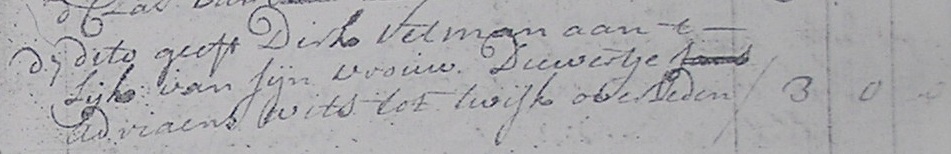 dỳ dito geeft Dirk Velman aan t
Lijk van sijn vrouw. Diewertje
Adriaens wits tot twisk overleden / 3 0